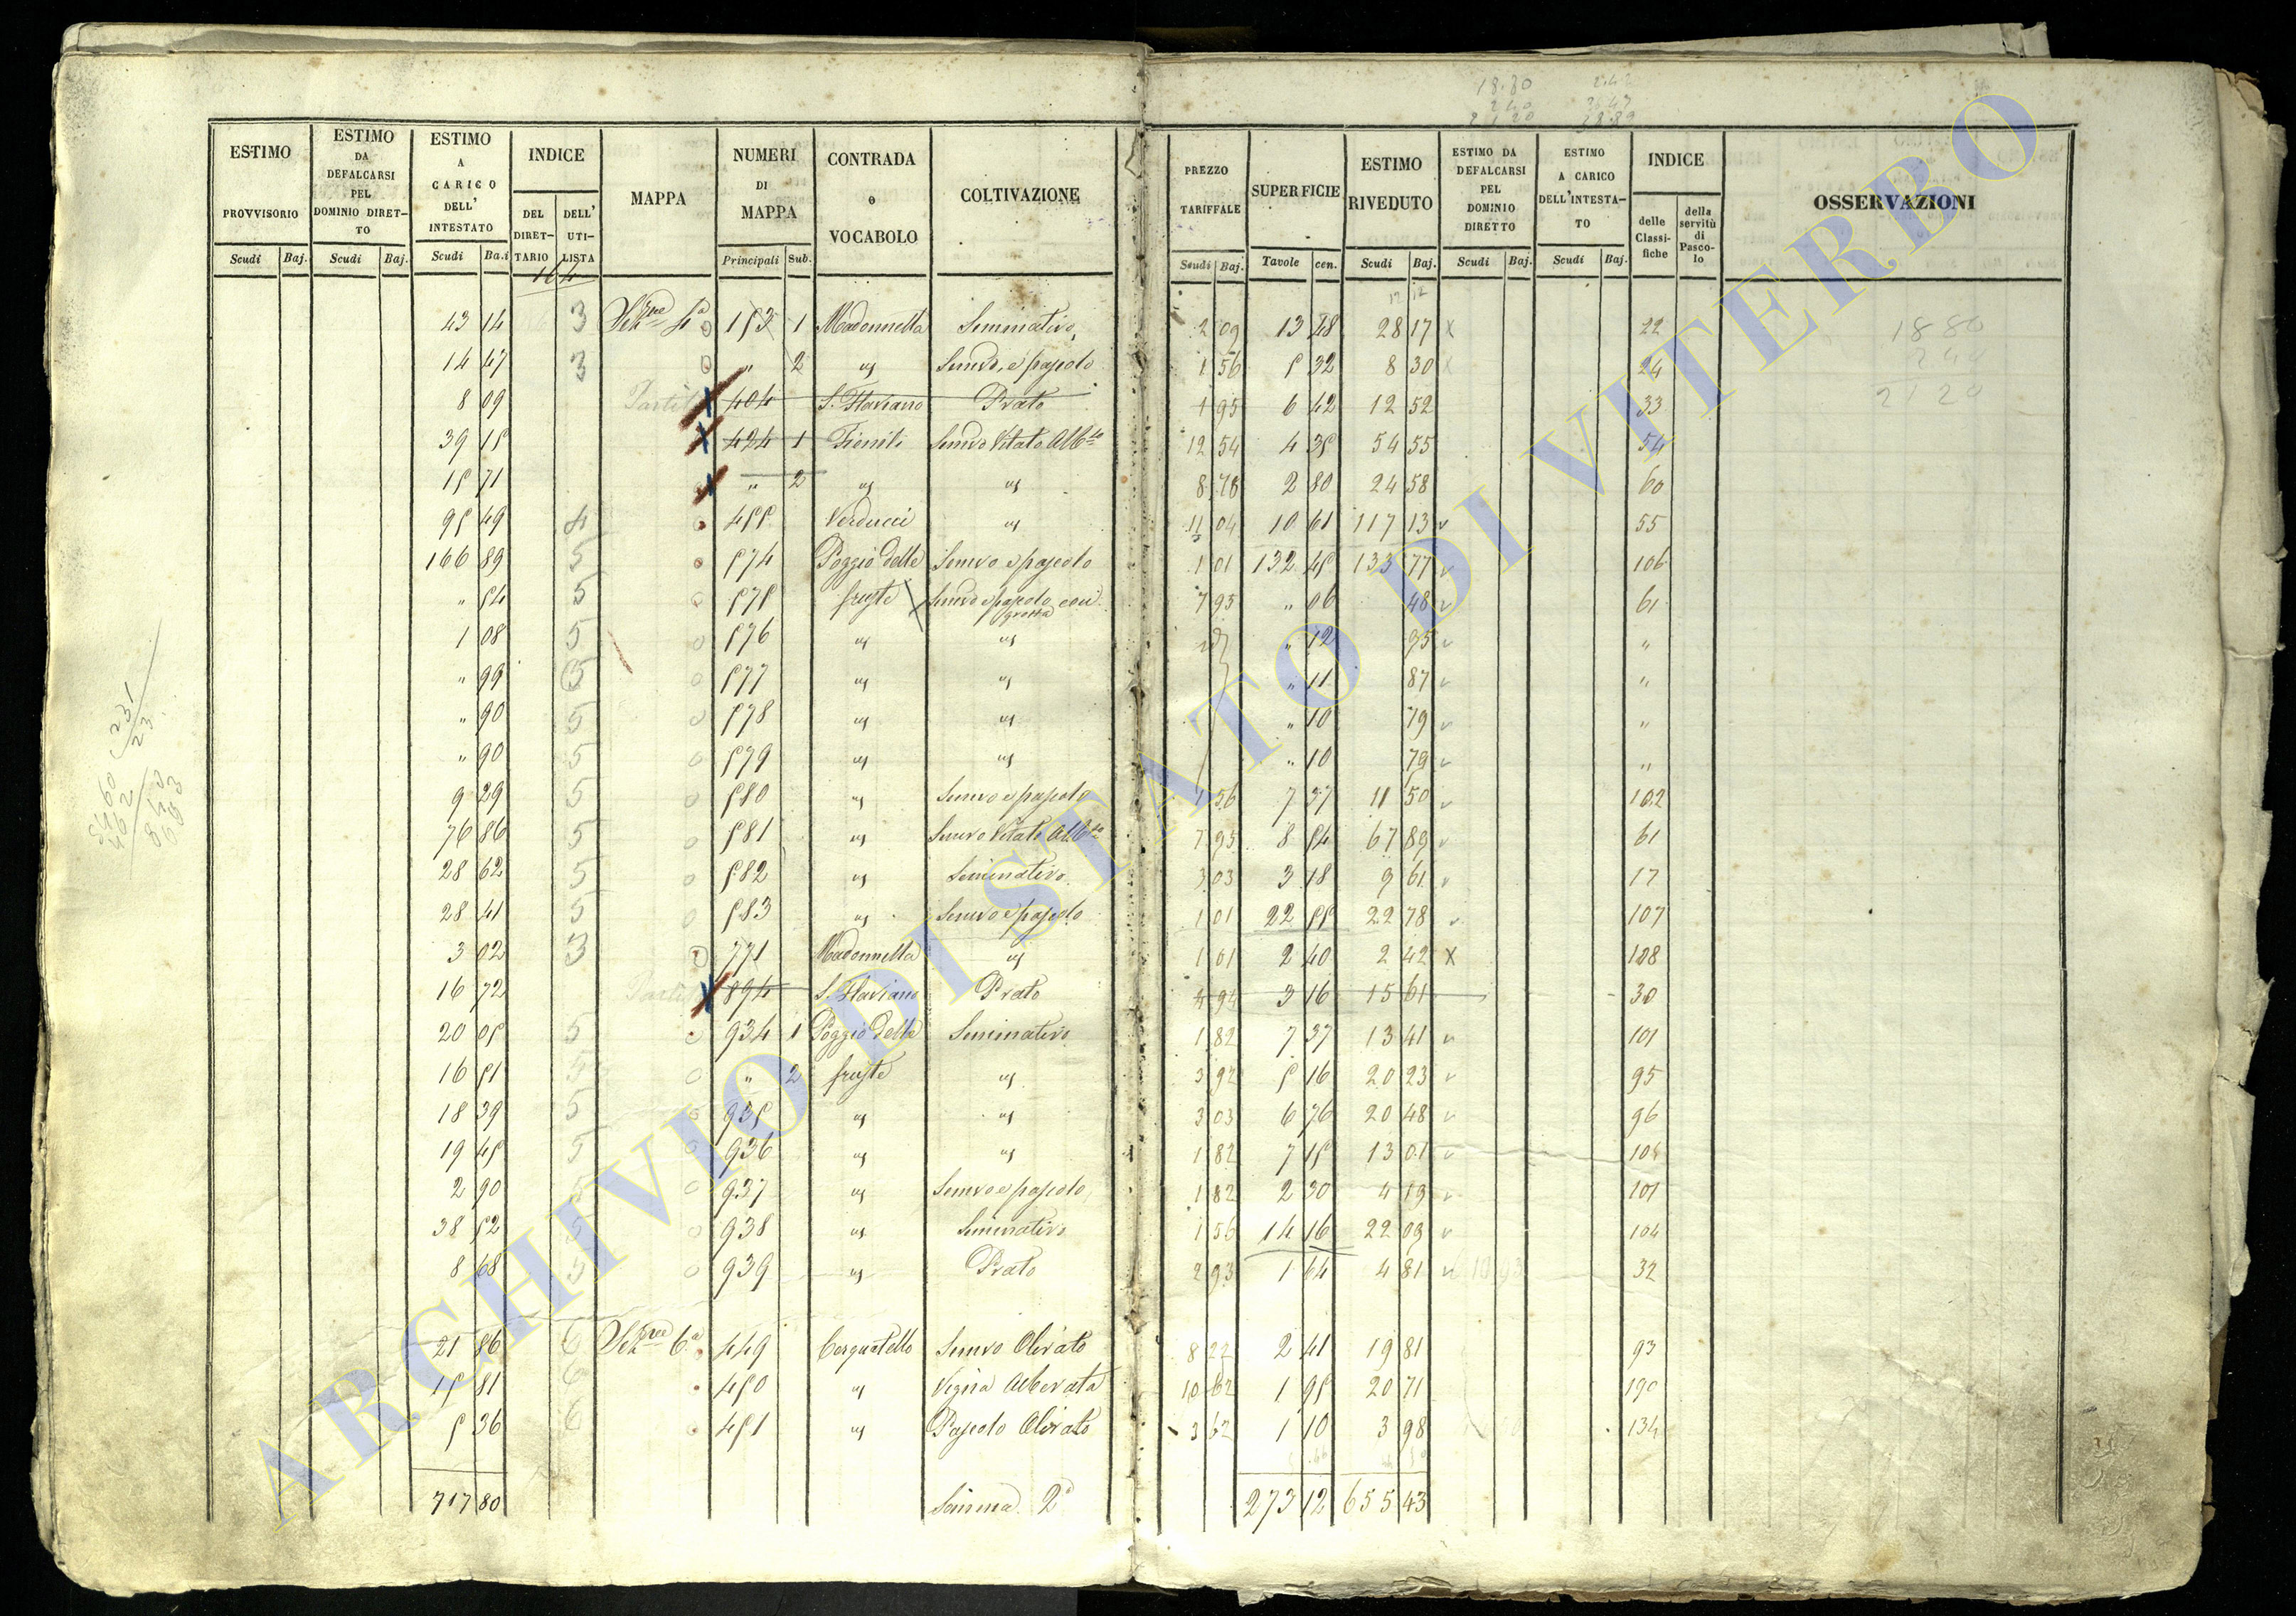 18.80 2.4
2 40 26 47
21 20 28 89
ESTIMO PROVVISORIO ESTIMO DA DEFALCARSI PEL DOMINIO DIRET-TO ESTIMO A CARICO DELL' INTESTATO INDICE MAPPA NUMERI DI MAPPA CONTRADA o VOCABOLO COLTIVAZIONE PREZZO TARIFFALE SUPERFICIE ESTIMO RIVEDUTO ESTIMO DA DEFALCARSI PEL DOMINIO DIRETTO ESTIMO A CARICO DELL'INTESTA-TO INDICE OSSERVAZIONI
DEL DIRET-TARIO DELL' UTI-LISTA delle Classi-fiche della servitù di Pasco-lo
Scudi Baj. Scudi Baj. Scudi Ba.i Principali Sub. Scudi Baj. Tavole cen. Scudi Baj. Scudi Baj. Scudi Baj.
164
43 14 3 Sezne 4a 153 1 Madonnella Seminativo 2 09 13 48 28 17 x 22
14 47 3 " 2 us Semvo, e pascolo 1 56 5 32 8 30 x 24
8 09 404 S. Flaviano Prato 1 95 6 42 12 52 33
39 15 424 1 Fieniti Semvo Vitato Albto 12 54 4 35 54 55 54
15 71 " 2 us us 8 78 2 80 24 58 60
95 49 4 455 Verducci us 11 04 10 61 117 13 v 55
166 89 5 574 Poggio delle Semvo e pascolo 1 01 132 45 133 77 v 106
" 54 5 575 fruste Semvo e pascolo con grotta 7 95 " 06 48 v 61
1 08 5 576 us us id " 12 95 v "
" 99 5 577 us us " 11 87 v "
" 90 5 578 us us " 10 79 v "
" 90 5 579 us us " 10 79 v "
9 29 5 580 us Semvo e pascolo 1 56 7 37 11 50 v 102
76 86 5 581 us Semvo Vitato Albto 7 95 8 54 67 89 v 61
28 62 5 582 us Seminativo 3 03 3 18 9 61 v 17
28 41 5 583 us Semvo e pascolo 1 01 22 55 22 78 v 107
3 02 3 771 Madonnella us 1 01 2 40 2 42 x 108
16 72 894 S. Flaviano Prato 4 94 3 16 15 61 30
20 05 5 934 1 Poggio delle Seminativo 1 82 7 37 13 41 v 101
16 51 5 " 2 fruste us 3 92 5 16 20 23 v 95
18 39 5 935 us us 3 03 6 76 20 48 v 96
19 45 5 936 us us 1 82 7 15 13 01 v 104
2 90 5 937 us Semvo e pascolo 1 82 2 30 4 19 v 101
38 52 5 938 us Seminativo 1 56 14 16 22 09 v 104
8 68 5 939 us Prato 2 93 1 64 4 81 v 32
21 86 6 Sezne 6a 449 Cerquatello Semvo Olivato 8 22 2 41 19 81 93
15 81 6 450 us Vigna Alberata 10 62 1 95 20 71 190
5 36 6 451 us Pascolo Olivato 3 62 1 10 3 98 134
717 80 Somma 2a 273 12 655 43
18 80
2 40
21 20
231
23
ARCHIVIO DI STATO DI VITERBO